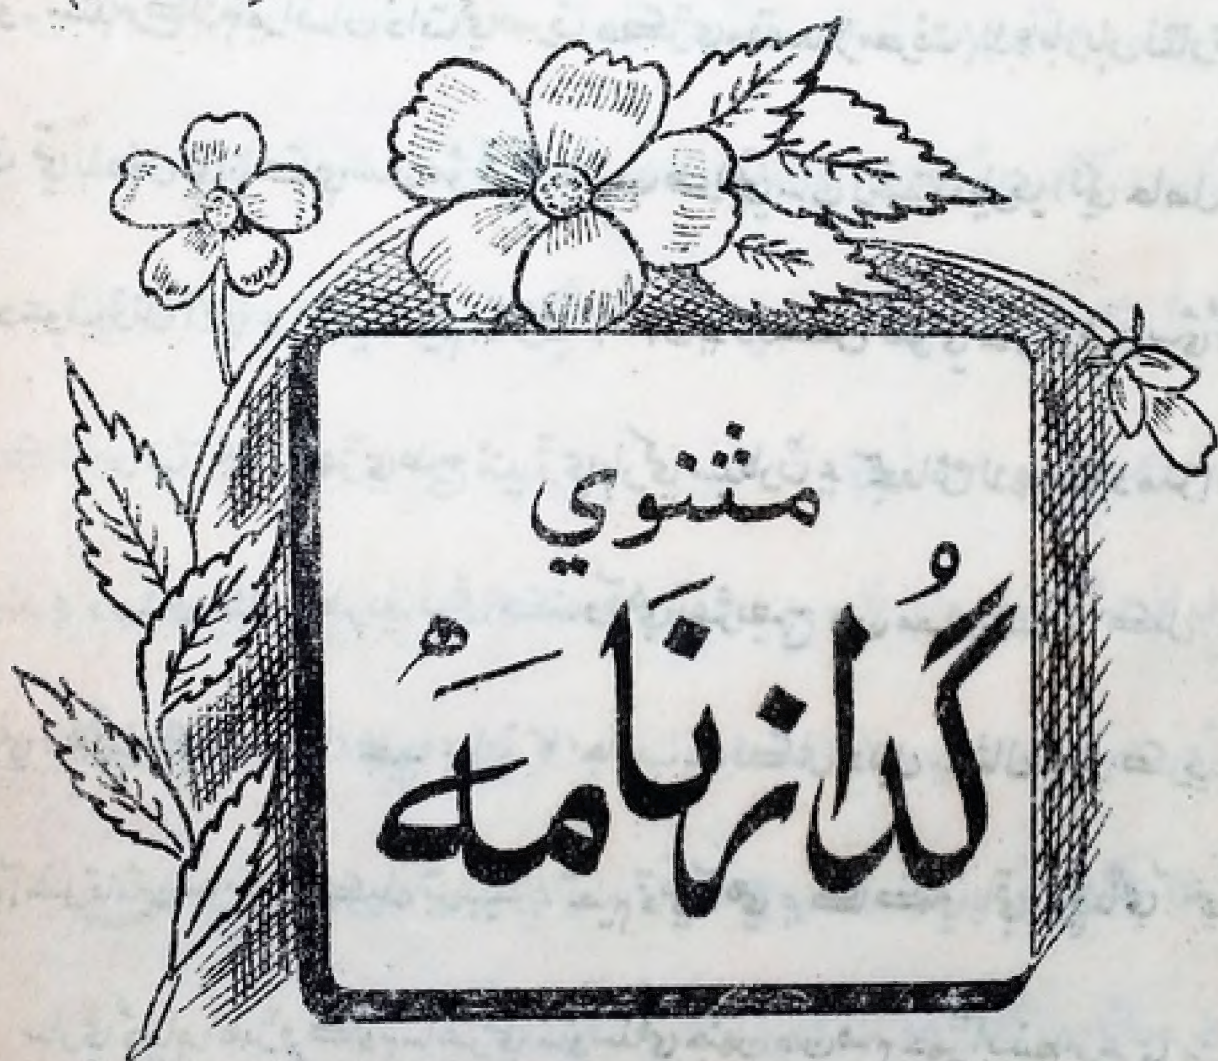 مثنوي
گُدازنَامَهُ